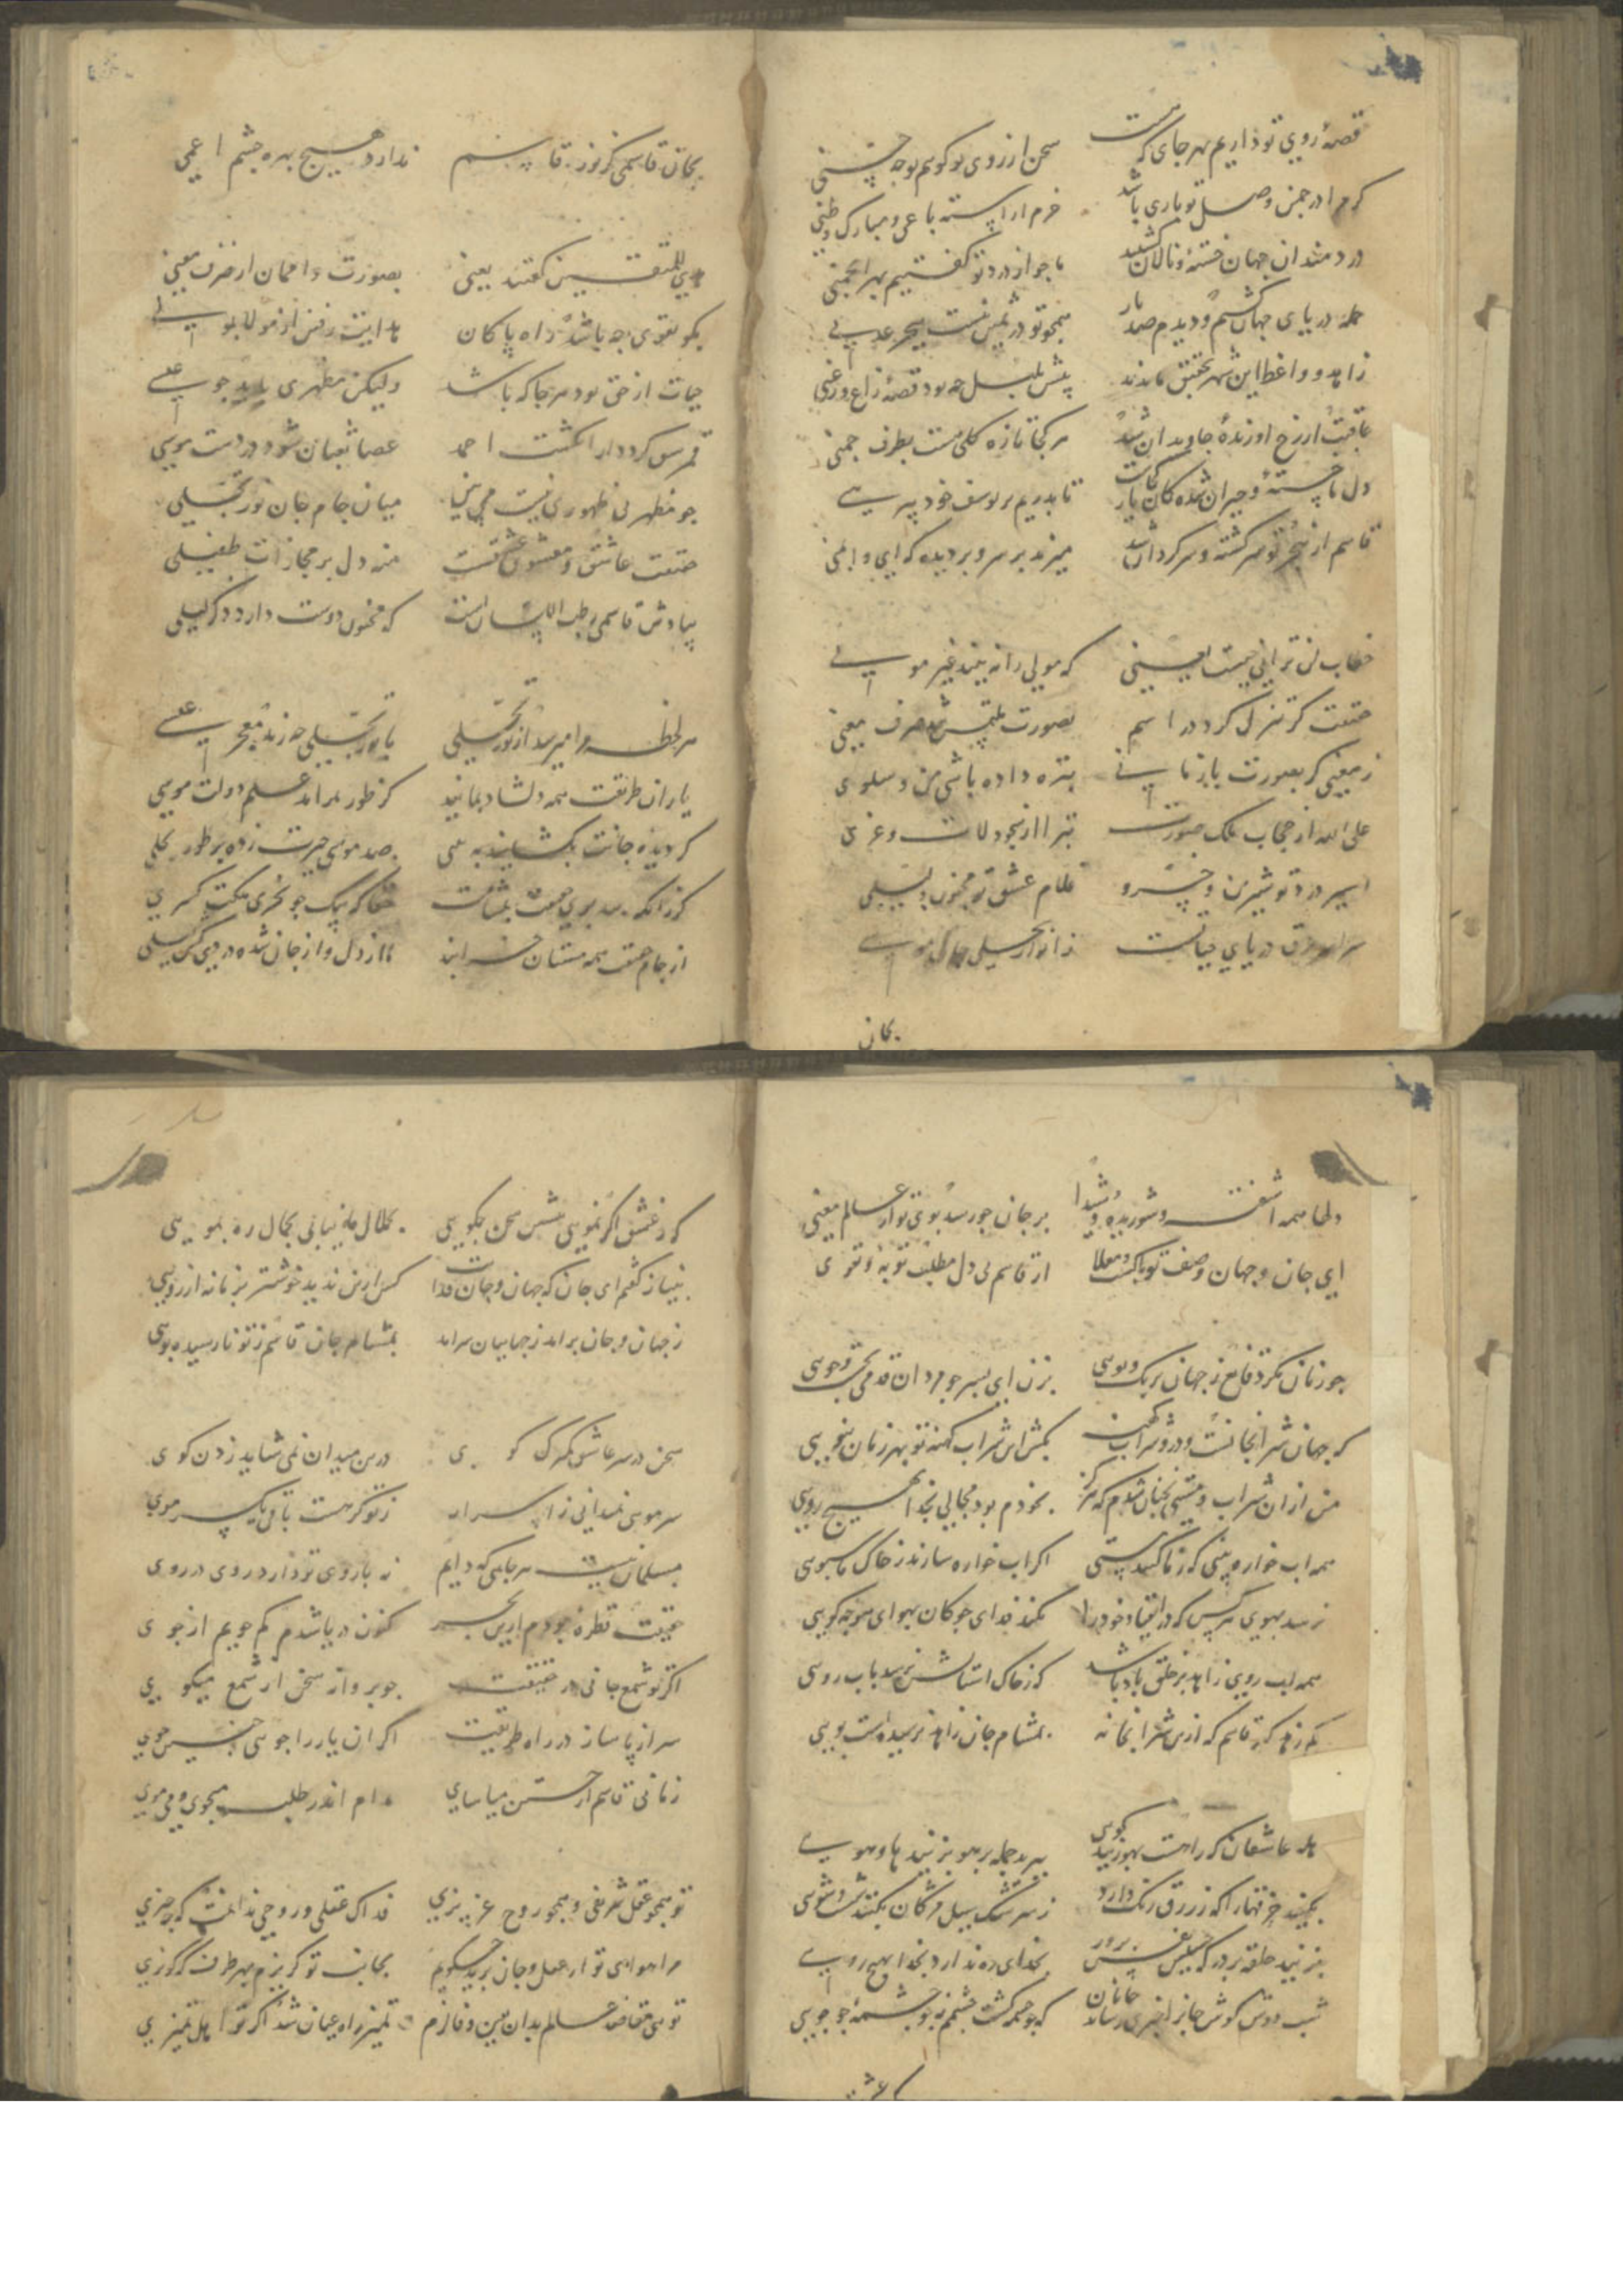 قصهٔ روی تو داریم بهر جای که هست سخن از روی تو کویم بوجه حسنی
کر مرا در چمن وصل تو باری باشد خرم اراسته باغی و مبارک وطنی
دردمندان جهان خسته و نالان کشتند ما جو از درد تو کفتیم بهر انجمنی
جمله دریای جهان کشتم و دیدم صد بار همچو تو در ثمین نیست ببحر عدنی
زاهد و واعظ این شهر بتحقیق ماندند پیش بلبل چه بود قصهٔ زاغ و زغنی
عاقبت از رخ او زندهٔ جاویدان شد هر کجا تازه کلی هست بطرف چمنی
دل ما خسته و حیران شده کان یار کجاست تا بدریم بر یوسف خود پیرهنی
قاسم از هجر تو سرکشته و سرکردان شد میزند بر سر و بر دیده که ای وای منی
خطاب لن ترانی چیست یعنی که مولی را نه بیند غیر مولی
حقیقت کر تنزل کرد در اسم بصورت ملتبس شد حرف معنی
ز معنی کر بصورت بازمانی بتره داده باشی من و سلوی
علی الله از حجاب ملک صورت تبرا از سجود لات و عزی
اسیر درد تو شیرین و خسرو غلام عشق تو مجنون و لیلی
سراسر غرق دریای حیاتست ز انوار تجلی جان موسی
بجان
بجان قاسمی کز نور قاسم ندارد هیچ بهره چشم اعمی
هدی للمتقین کفتند یعنی بصورت وا ممان از حرف معنی
بکو تقوی چه باشد راه پاکان هدایت رفتن از مولا بمولی
حیات از حق بود هر جا که باشد ولیکن مظهری باید جو عیسی
قمر شق کردد از انکشت احمد عصا ثعبان شود در دست موسی
جو مظهر بی ظهوری نیست می بین میان جام جان نور تجلی
حقیقت عاشق و معشوق عشقست منه دل بر مجازات طفیلی
بیادش قاسمی رطب اللسان است که مجنون دوست دارد ذکر لیلی
هر لحظه مرا میرسد از نور تجلی با نور تجلی چه زند معجز عیسی
یاران طریقت همه دلشاد بمانید کز طور برامد علم دولت موسی
کر دیدهٔ جانت بکشایند به بینی صد موسی حیرت زده بر طور تجلی
از جام حقت همه مستان خرابند ما از دل و از جان شده در پی لیلی
دلها همه اشفته و شوریده و شیدا بر جان جو رسد بوی تو از عالم معنی
ای جان و جهان وصف تو پاکست و معلا از قاسم بی دل مطلب توبه و تقوی
جو زنان مکرد قانع ز جهان برنک و بویی بزن ای پسر جو مردان قدمی بجست و جویی
که جهان شرابخانست و درو شراب کهنه بکش این شراب کهنه تو بهر زمان بنویی
من از ان شراب و مستی بچنان شدم که هرکز بخودم بود مجالی بخدا بهیچ رویی
همه اب خوار و بینی که ز خاک کنند پستی اکر اب خواره سازند ز خاک ما سبویی
نرسد بهوی هر کس که در انقیاد خود را نکند فدای جوکان بهوای هو جو کویی
همه اب روی زاهد بر خلق باد باشد که ز خاک استانش نرسد باب رویی
کم زهد کیر قاسم که ازین شرابخانه بمشام جان زاهد نرسیده است بویی
هله عاشقان که راهست بهو زنید کویی ببرید جمله بر هو بزنید ها و هویی
بکنید خرقها را که زرزق رنک دارد ز سرشک سیل مژکان بکنید شست و شویی
بزنید حلقه بر در که جلیس نفس پرور بخدای ره ندارد بخدا بهیچ رویی
شب دوش کوش جانرا خبری رساند جانان که جو چشمه کشت چشمم جو چشمه جو بجویی
که ز عشق
که ز عشق اکر نمویی سخن بکویی بکمال جان نیابی بجمال ره نمویی
بنیاز کفتم ای جان که جهان و جان فدایت کس ازین ندید خوشتر بزمانه ارزویی
ز جهان و جان برامد ز جهانیان سرامد بمشام جان قاسم ز تو نارسیده بویی
سخن در سر عاشق کم کوی درین میدان نمی شاید زدن کوی
سر مویی ندانی ز اسرار ز تو کر هست باقی یک سر موی
مسلمان نیست هر جانی که دایم نه با روی تو دارد روی در روی
حقیقت قطرهٔ بودم ازین بحر کنون دریا شدم کم جویم از جوی
اکر تو شمع جانی در حقیقت جو پروانه سخن از شمع میکوی
سر از پا ساز در راه طریقت اکر ان یار را جویی چنین جوی
زمانی قاسم از جستن میاسای مدام اندر طلب میجوی و می موی
تو همجو عقل شریفی و همجو روح عزیزی فداک عقلی و روحی ندانمت که چه چیزی
مرا هوای تو از عقل و جان برید چکویم بجانب تو کریزم بهر طرف که کریزی
تویی مقاصد عالم بدان ببین و فازم تمیز راه عیان شد اکر تو اهل تمیزی